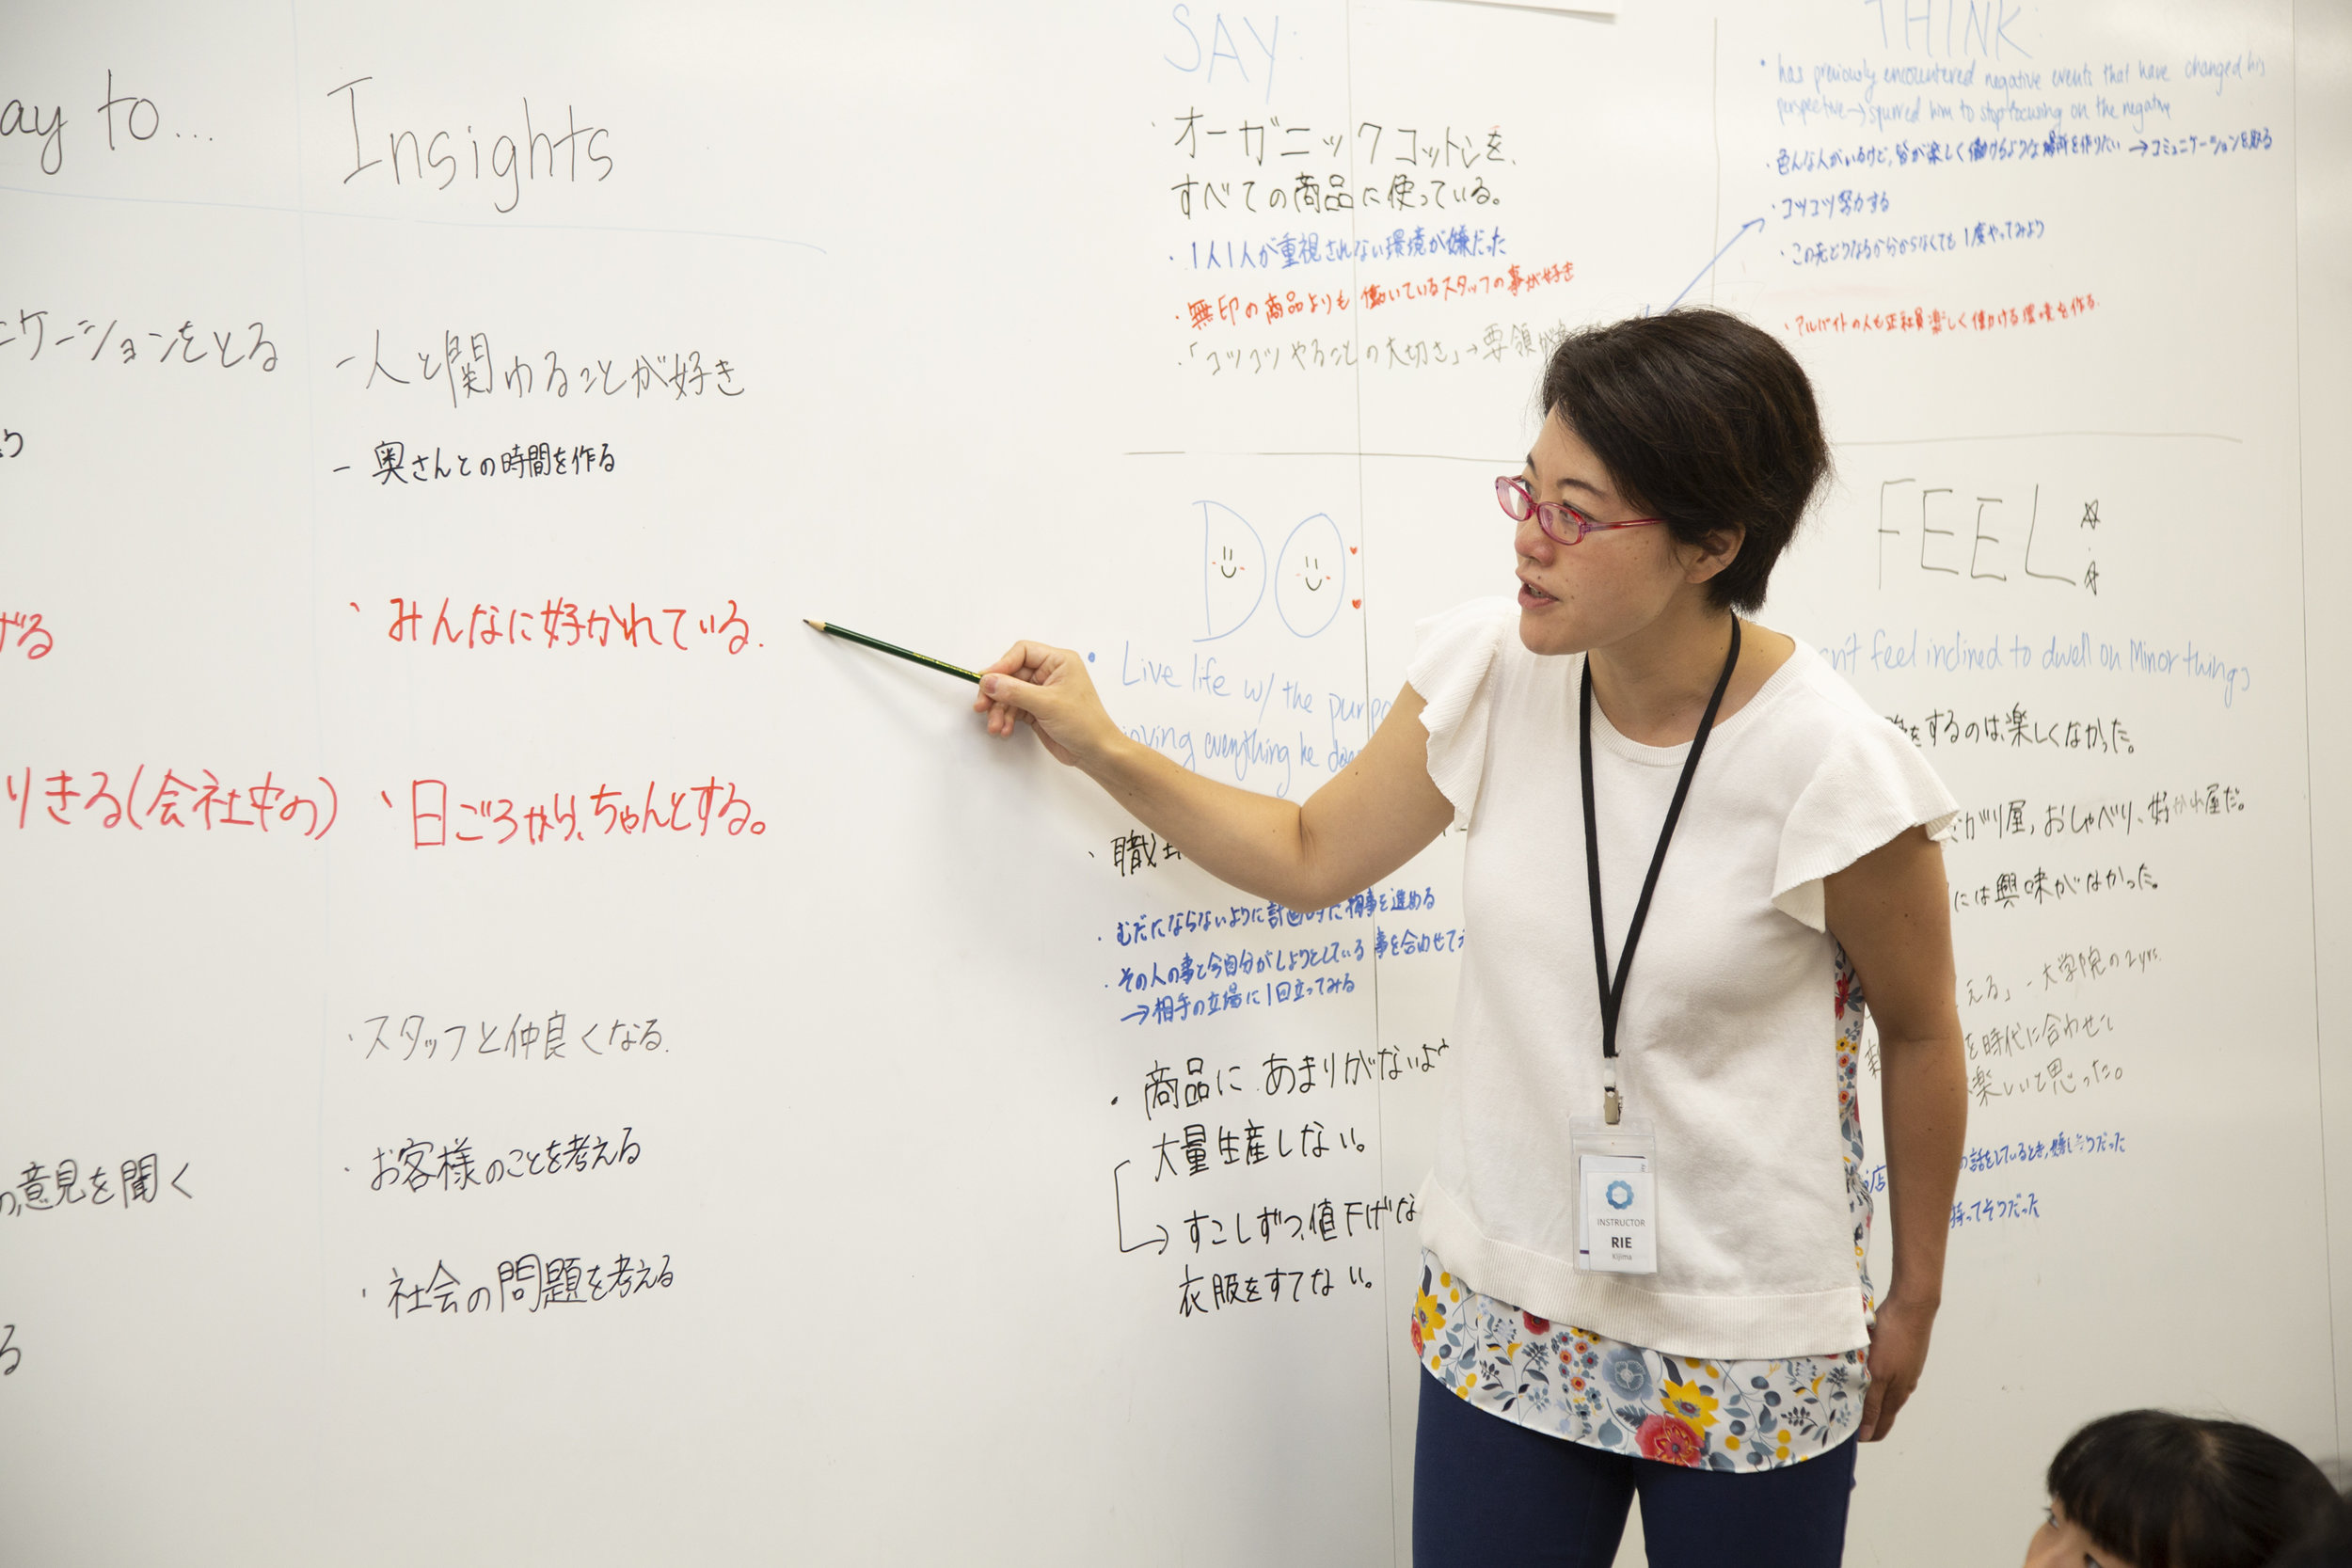 ay to...
ニケーションをとる
げる
りきる(会社中の)
の意見を聞く
る
Insights
- 人と関わることが好き
- 奥さんとの時間を作る
・みんなに好かれている.
・日ごろから、ちゃんとする。
・スタッフと仲良くなる.
・お客様のことを考える
・社会の問題を考える
SAY:
・オーガニックコットンを、
すべての商品に使っている。
・1人1人が重視されない環境が嫌だった
・無印の商品よりも働いているスタッフの事が好き
・「コツコツやることの大切さ」→要領が
THINK:
・has previously encountered negative events that have changed his
perspective → spurred him to stop focusing on the negative
・色んな人がいるけど、皆が楽しく働けるような場所を作りたい → コミュニケーションを取る
・コツコツ努力する
・この先どうなるか分からなくても1度やってみよう
・アルバイトの人も正社員楽しく働ける環境を作る.
DO
・Live life w/ the purpo
everything he does
・職
・むだにならないように計画的に物事を進める
・その人の事と今自分がしようとしている事を合わせて
→相手の立場に1回立ってみる
・商品にあまりがないよ
大量生産しない。
→すこしずつ、値下げな
衣服をすてない。
FEEL:
n't feel inclined to dwell on Minor things
をするのは、楽しくなかった。
がり屋, おしゃべり、好かれ屋だ。
には興味がなかった。
える」- 大学院の2yrs.
を時代に合わせて
楽しいと思った。
の話をしているとき、嬉しそうだった
店
持ってそうだった
INSTRUCTOR
RIE
Kijima